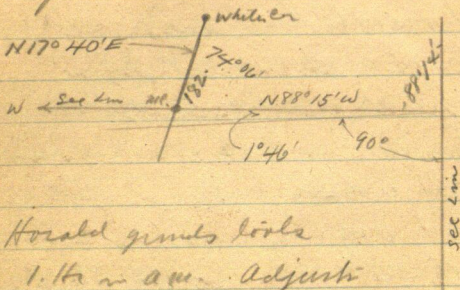 Whitlen
N17° 40'E
74° 06'
182.
88° 14'
W Sec Lin MP. N88° 15' W
1° 46' 90°
Sec Lin
Horald grinds tools
1. Hr in am. Adjusti